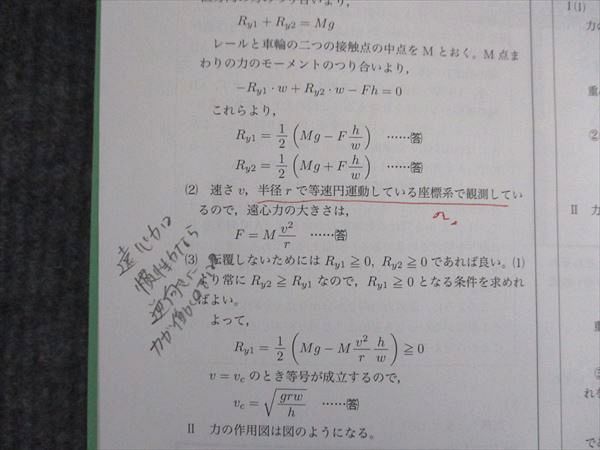 R_{y1} + R_{y2} = Mg
レールと車輪の二つの接触点の中点を M とおく。M 点ま
わりの力のモーメントのつり合いより，
−R_{y1}・w + R_{y2}・w − Fh = 0
これらより，
R_{y1} = \frac{1}{2}(Mg − F\frac{h}{w}) ……答
R_{y2} = \frac{1}{2}(Mg + F\frac{h}{w}) ……答
(2) 速さ v，半径 r で等速円運動している座標系で観測してい
るので，遠心力の大きさは，
F = M\frac{v^2}{r} ……答
(3) 転覆しないためには R_{y1} ≧ 0, R_{y2} ≧ 0 であれば良い。(1)
り常に R_{y2} ≧ R_{y1} なので，R_{y1} ≧ 0 となる条件を求めれ
ばよい。
よって，
R_{y1} = \frac{1}{2}(Mg − M\frac{v^2}{r}\frac{h}{w}) ≧ 0
v = v_c のとき等号が成立するので，
v_c = \sqrt{\frac{grw}{h}} ……答
II 力の作用図は図のようになる。
遠心力は
慣性力なら
逆向きに
力が働く
I (1)
力の
重
②
II 力
重
③
れを